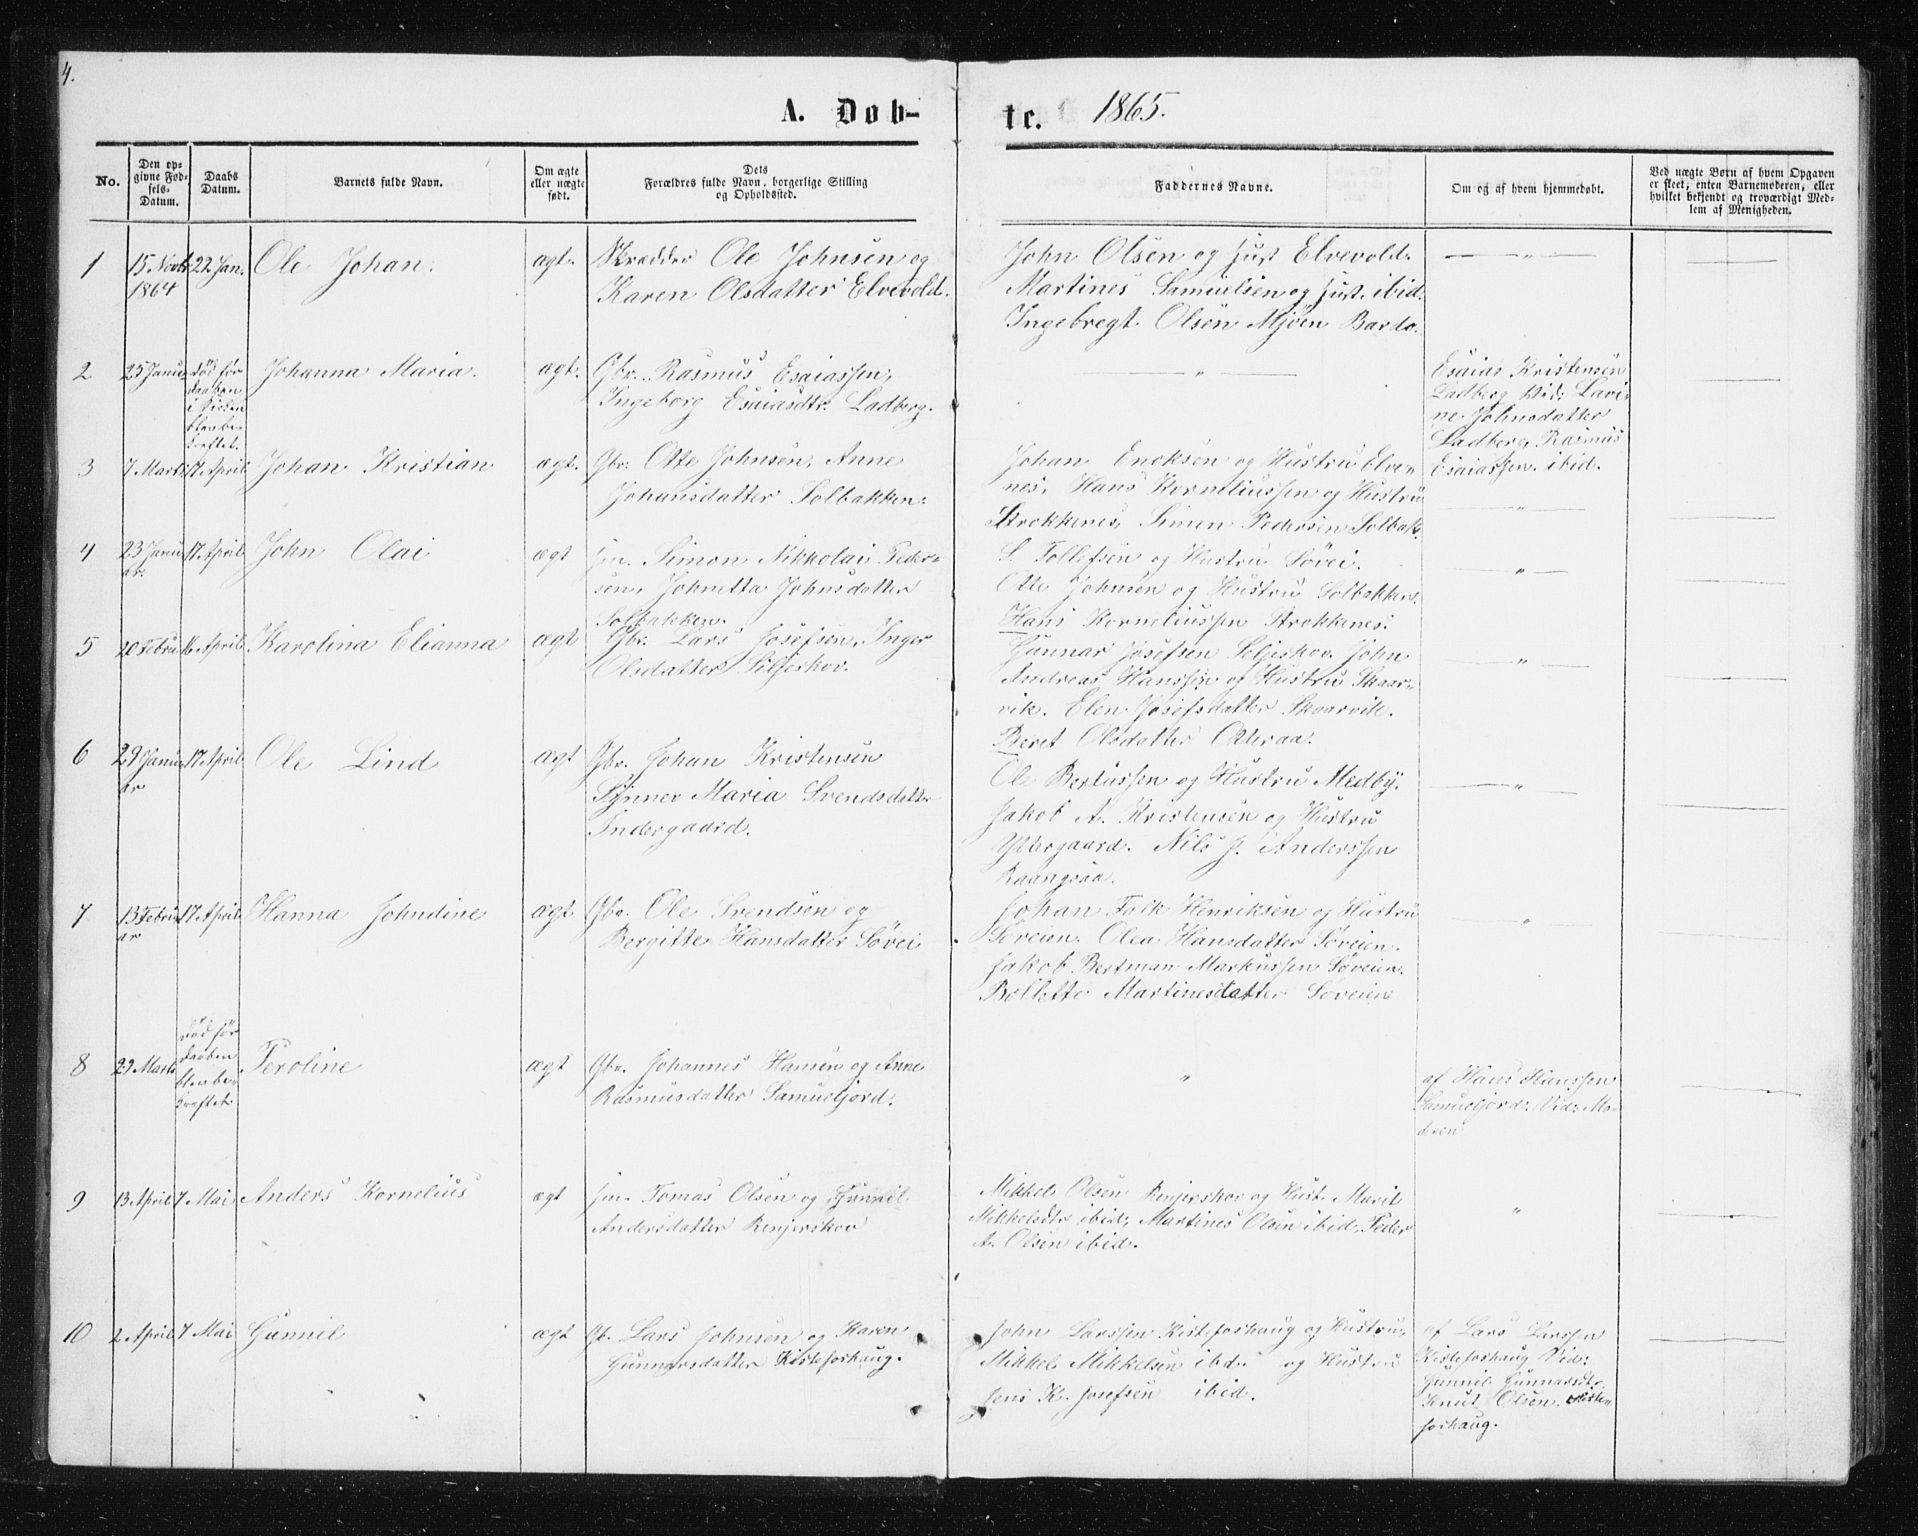 4.
A. Døb-
te.
1865.
No.
Den op-
givne Fød-
sels-
Datum.
Daabs
Datum.
Barnets fulde Navn.
Om ægte
eller uægte
født.
Dets
Forældres fulde Navn, borgerlige Stilling
og Opholdssted.
Faddernes Navne.
Om og af hvem hjemmedøbt.
Ved uægte Børn af hvem Opgaven
er skeet, enten Barnemoderen, eller
hvilket bekjendt og troværdigt Med-
lem af Menigheden.
1
15 Novbr
1864
22 Jan.
Ole Johan.
ægt.
Skrædder Ole Johnsen og
Karen Olsdatter Elvevold.
John Olsen og Hust Elvevold.
Martines Samuelsen og Hust. ibid.
Ingebregt Olsen Mjøen Bardo.
2
25 Janu
død før
Daaben
i Kirken
blev be-
kræftet.
Johanna Maria.
ægt.
Gbr. Rasmus Esaiassen,
Ingeborg Esaiasdtr. Ladberg.
Esaias Kristensen
Ladberg Vid: Lavi-
ne Johnsdatter
Ladberg, Rasmus
Esaiassen ibid.
3
7 Marts
17 April
Johan Kristian
ægt.
Gbr: Otte Johnsen, Anne
Johansdatter Solbakken.
Johan Enoksen og Hustru Elve-
nes, Hans Korneliussen og Hustru
Strokkenes, Simen Pedersen Solbak.
4
23 Janu
ar.
17 April
John Olai
ægt
Jm. Simon Nikkolai Peder-
sen, Johnetta Johnsdatter
Solbakken.
S. Tollefsen og Hustru Søvei.
Otte Johnsen og Hustru Solbakken.
Hans Korneliussen Strokkenes.
5
20 Febru
16 April
Karolina Elianna
ægt
Gbr. Lars Josefsen, Inger
Olsdatter Siljeskov.
Gunnar Josefsen Seljeskov. John
Andreas Hanssen og Hustru Skaar-
vik. Elen Josefsdatter Skaarvik.
Beret Olsdatter Otteraa.
6
29 Janu
ar
17 April
Ole Lind
ægt
Gbr. Johan Kristensen
Synnev Maria Svendsdatter
Indergaard.
Ole Bertussen og Hustru Medby.
Jakob A. Kristensen og Hustru
Yttergaard. Nils J. Anderssen
7
13 Febru
ar
17 April
Hanna Johndine
ægt
Gbr. Ole Svendsen og
Bergitte Hansdatter Søvei
Johan Falk Henriksen og Hustru
Søveien. Olea Hansdatter Søveien.
Jakob Bertman Markussen Søveien.
Bollette Martinesdatter Søveien
8
29 Marts
Død før
Daaben
blev be-
kræftet
Peroline
ægt
Gbr. Johannes Hansen og Anne
Rasmusdatter Samueljord.
af Hans Hanssen
Samueljord. Vid: Mo-
deren
9
13 April
7 Mai
Anders Kornelius
ægt
Jm. Tomas Olsen og Gunnil
Andersdatter Renjerskov
Mikkel Olsen Renjerskov og Hust. Marit
Mikkelsdtr ibid, Martines Olsen ibid, Peder
A. Olsen ibid.
10
2 April
7 Mai
Gunnil
ægt
Gb. Lars Johnsen og Karen
Gunnarsdatter Kisteforhaug.
John Larssen Kisteforhaug og Hustru,
Mikkel Mikkelsen ibd. og Hustru
Jens K. Josefsen ibid.
af Lars Larssen
Kisteforhaug Vid:
Gunnil Gunnarsdtr.
Knut Olsen Kiste-
forhaug.